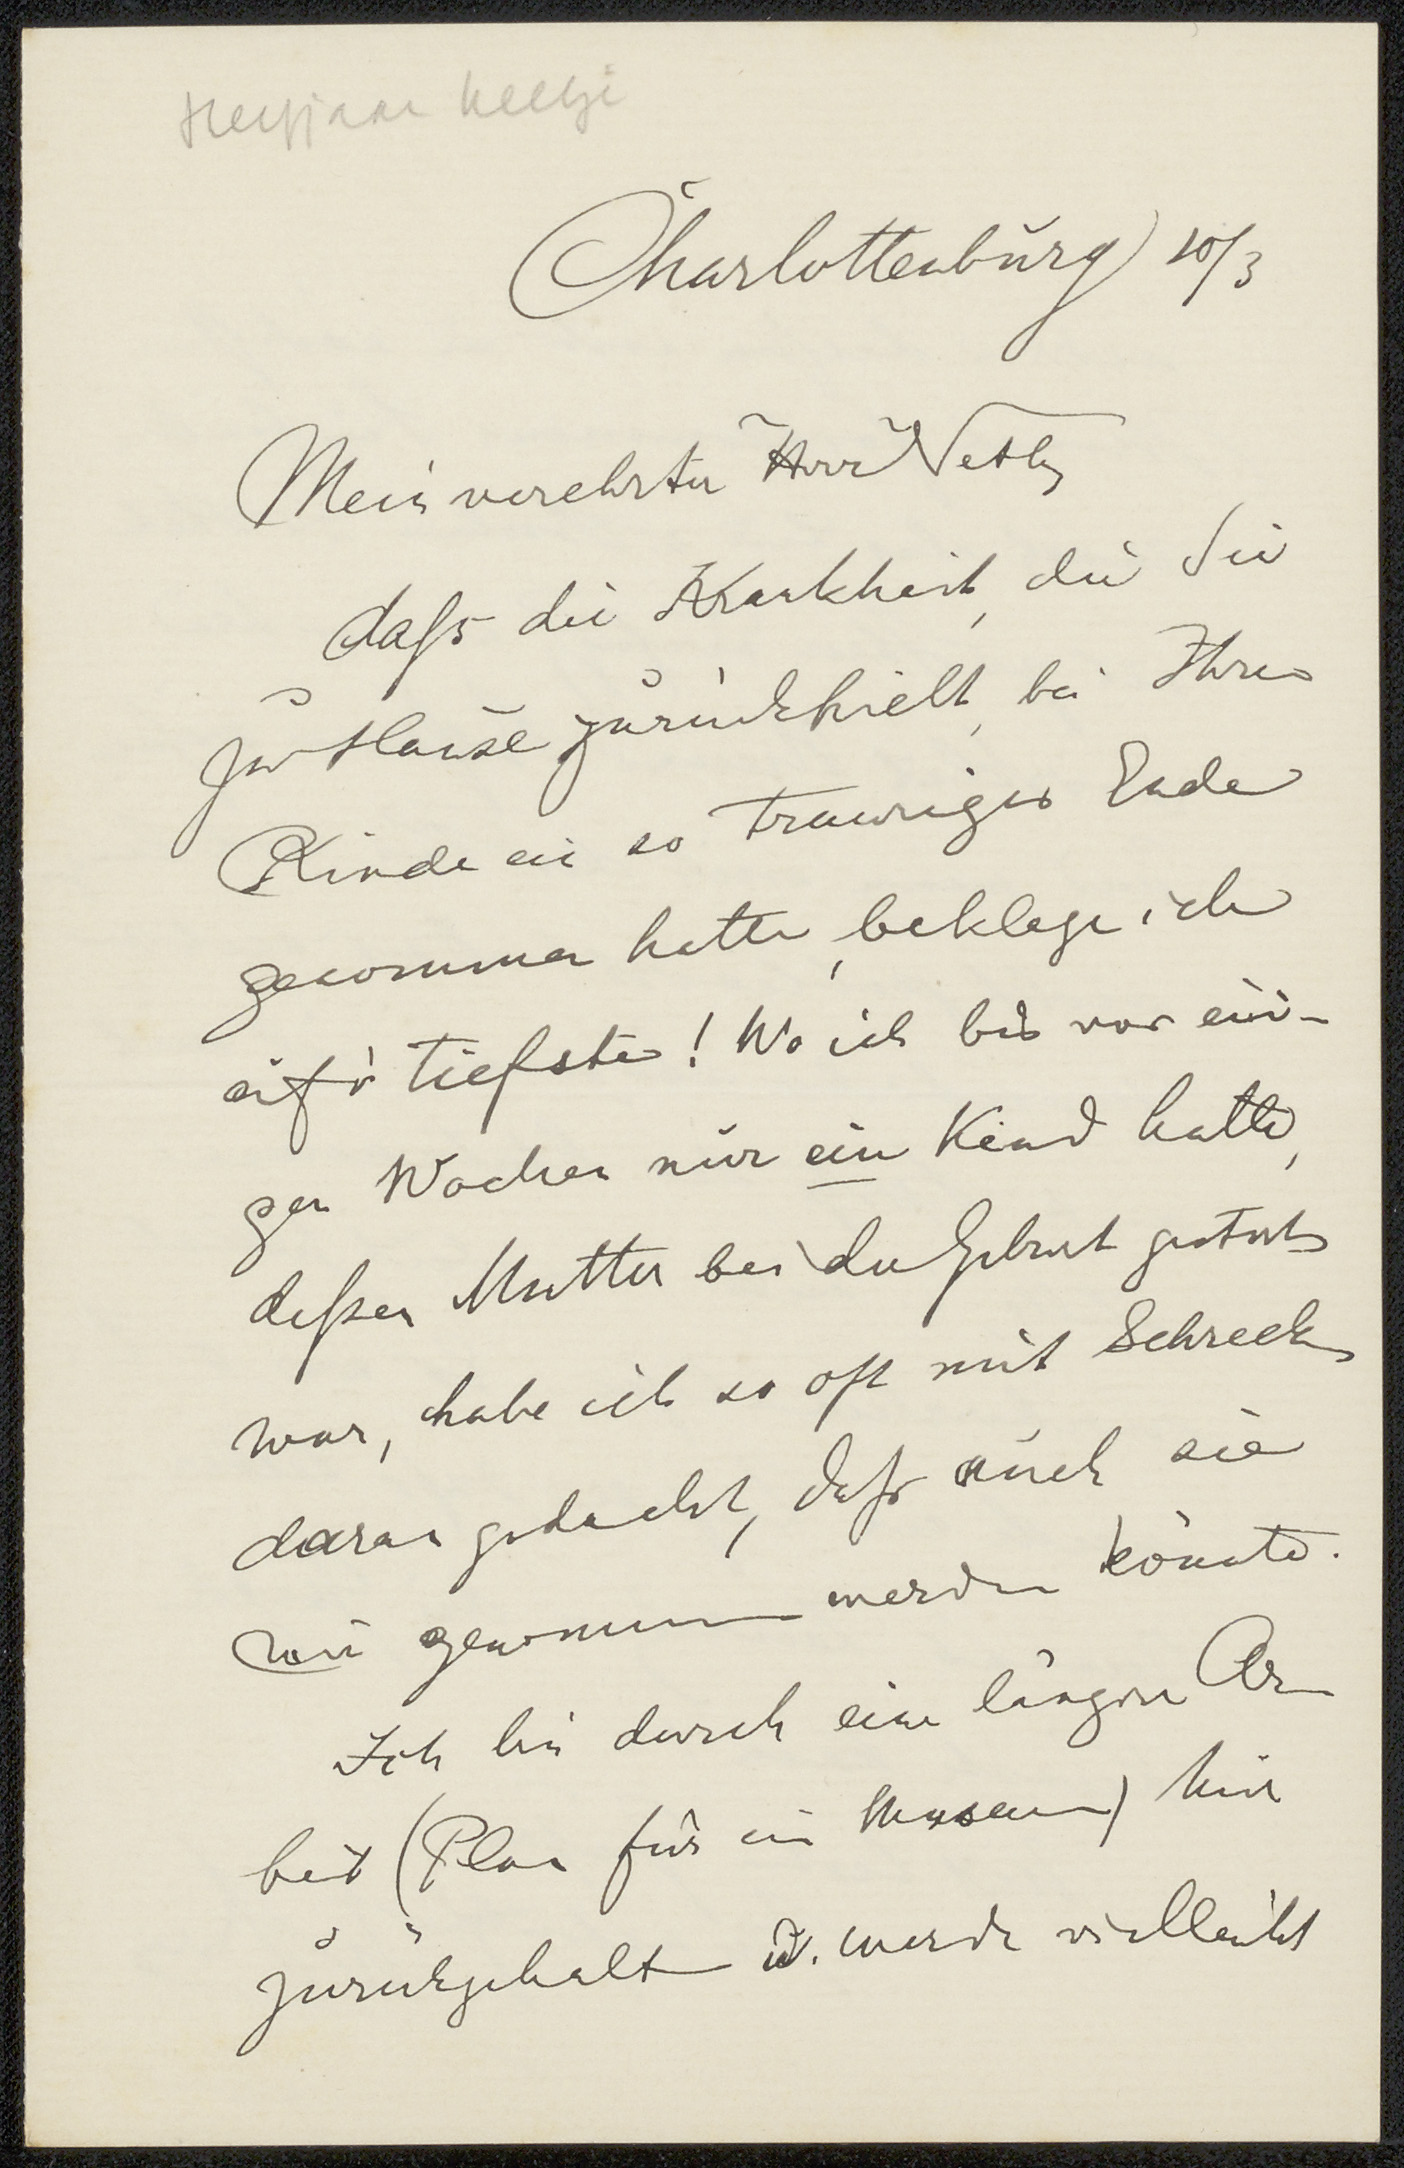 Charlottenburg 10/3
Mein verehrter Herr Veth,
dass die Krankheit, die Sie
zu Hause zurückhielt, bei Ihrem
Kinde ein so trauriges Ende
genommen hatte, beklage ich
auf's tiefste! Wo ich bis vor eini-
gen Wochen nur ein Kind hatte,
dessen Mutter bei der Geburt gestorben
war, habe ich so oft mit Schrecken
daran gedacht, dass auch sie
mir genommen werden könnte.
Ich bin durch eine längere Ar-
beit (Plan für ein Museum) hier
zurückgehalten u. werde vielleicht